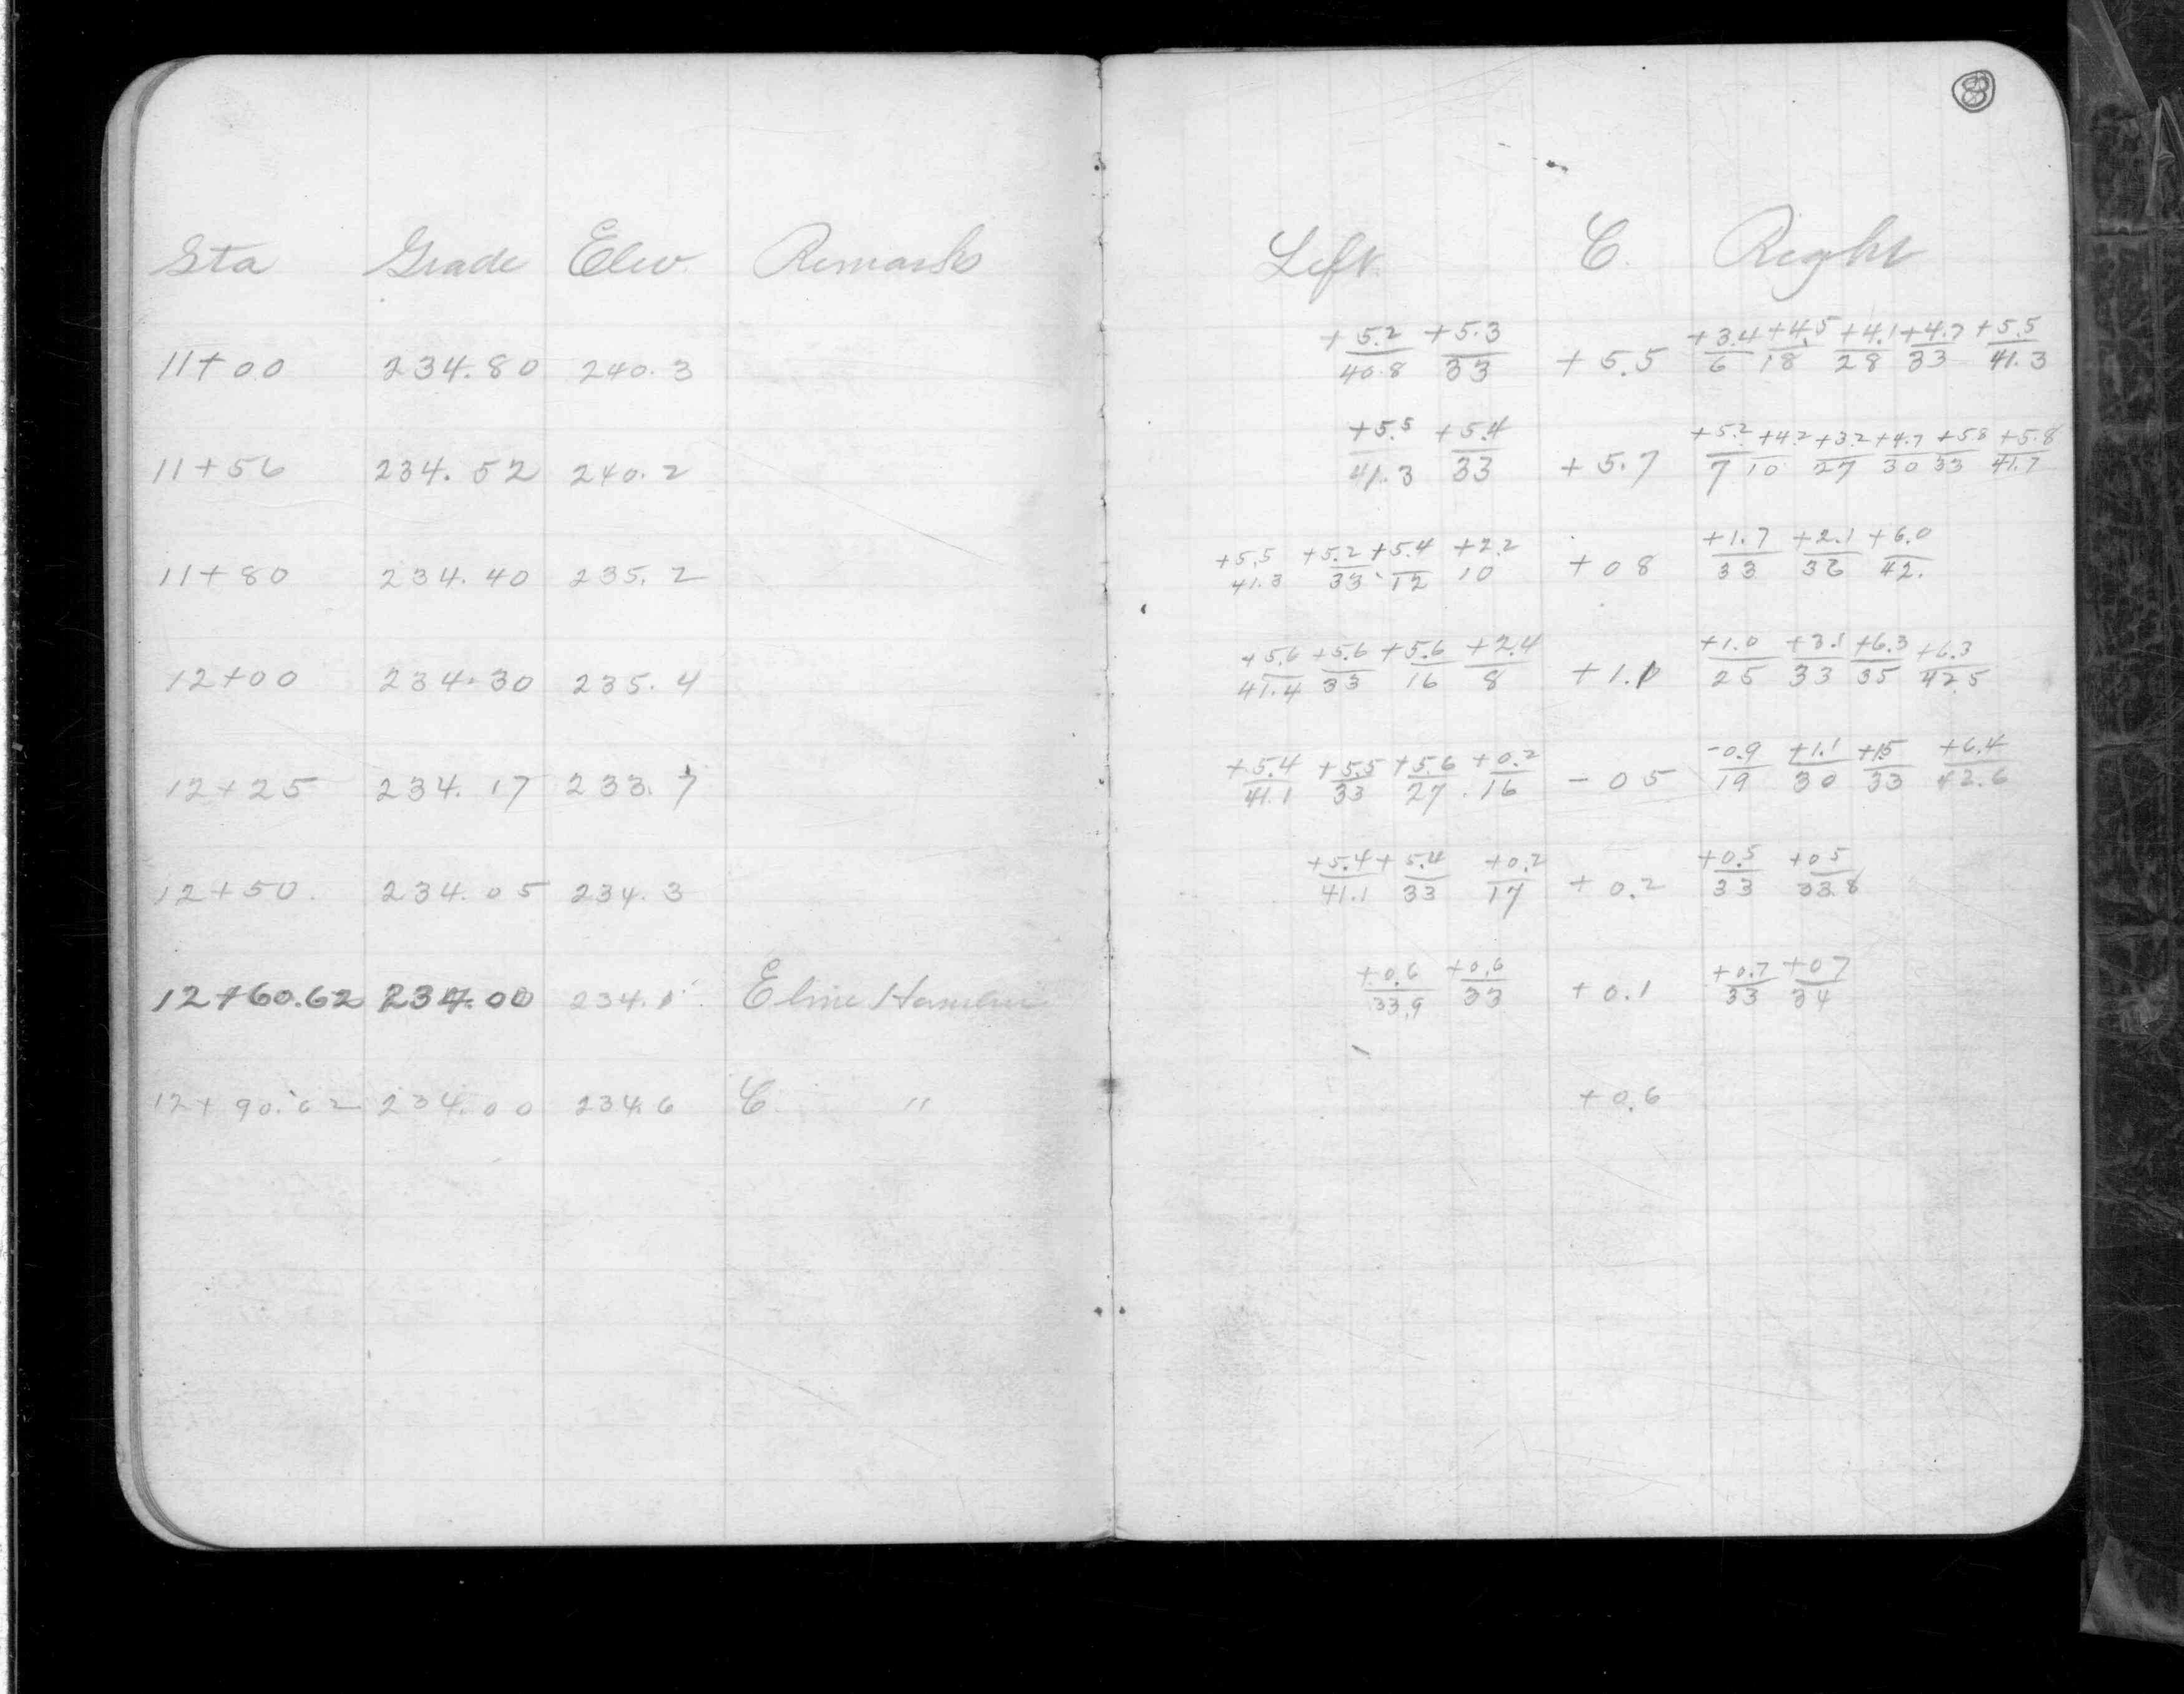 8
Sta Grade Elev. Remarks Left C. Right
+5.2 +5.3 +3.4 +4.5 +4.1 +4.7 +5.5
11+00 234.80 240.3 40.8 33 +5.5 6 18 28 33 41.3
+5.5 +5.4 +5.2 +4.2 +3.2 +4.7 +5.8 +5.8
11+56 234.52 240.2 41.3 33 +5.7 7 10 27 30 33 41.7
+5.5 +5.2 +5.4 +2.2 +1.7 +2.1 +6.0
11+80 234.40 235.2 41.3 33 12 10 +0 8 33 36 42.
+5.6 +5.6 +5.6 +2.4 +1.0 +3.1 +6.3 +6.3
12+00 234.30 235.4 41.4 33 16 8 +1.1 25 33 35 42.5
+5.4 +5.5 +5.6 +0.2 -0.9 +1.1 +1.5 +6.4
12+25 234.17 233.7 41.1 33 27 16 -0 5 19 30 33 42.6
+5.4 +5.4 +0.2 +0.5 +0 5
12+50. 234.05 234.3 41.1 33 17 +0.2 33 33.8
+0.6 +0.6 +0.7 +0 7
12+60.62 234.00 234.1 E line 33.9 33 +0.1 33 34
12+90.62 234.00 234.6 C " +0.6